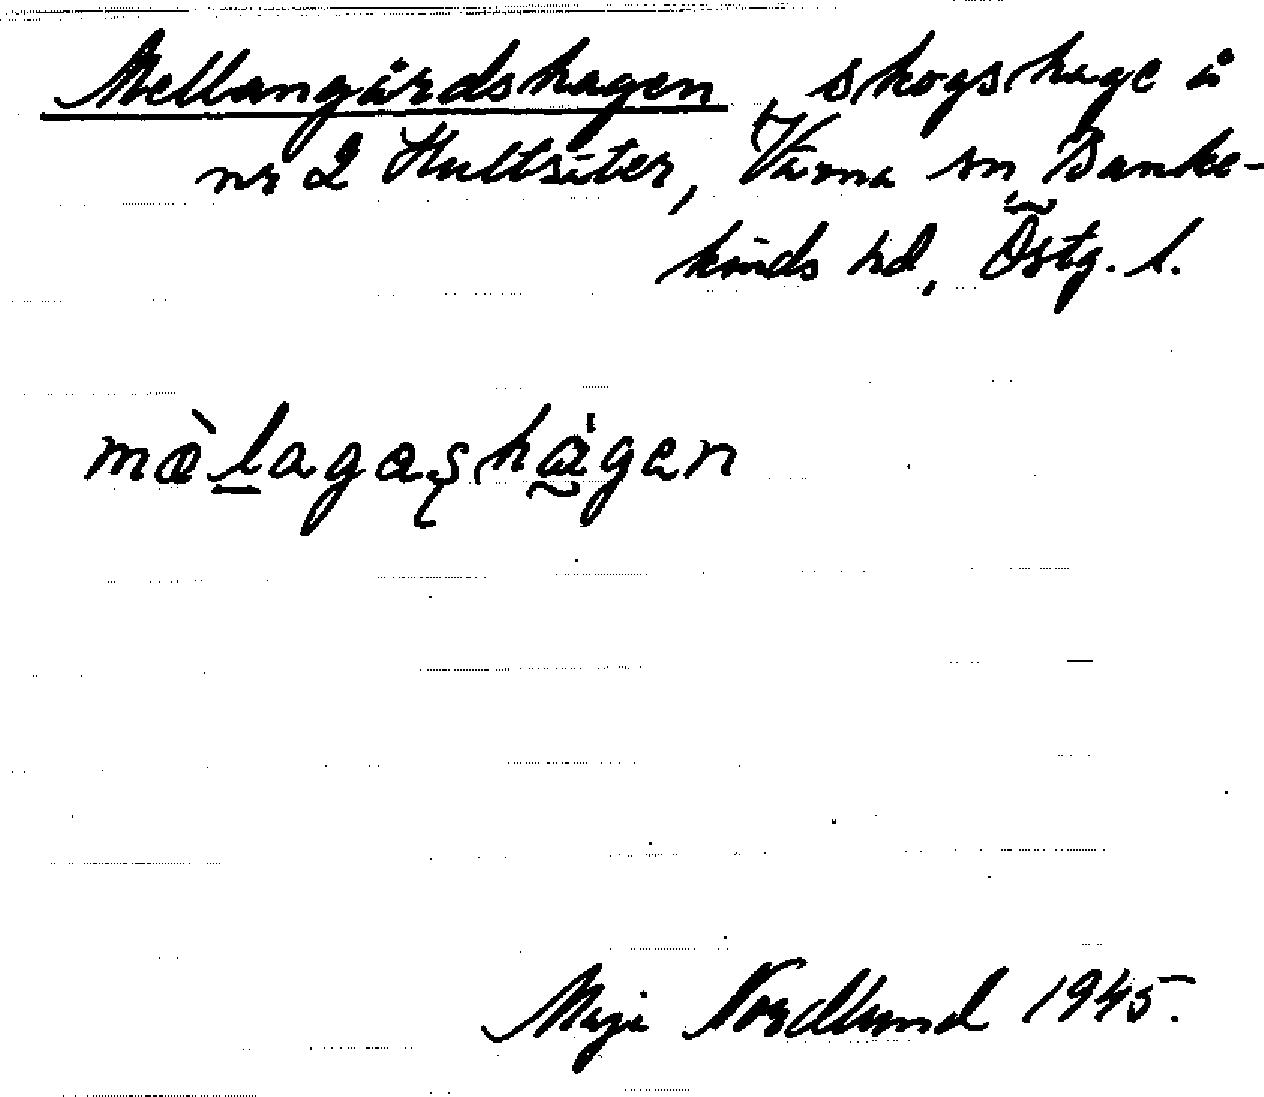 Mellangårdshagen, skogshage å
nr 2 Hultsäter, Värna sn Banke-
kinds hd, Östg. l.
mæ̀l̲agaʂhá̰gen
Maja Nordlund 1945.